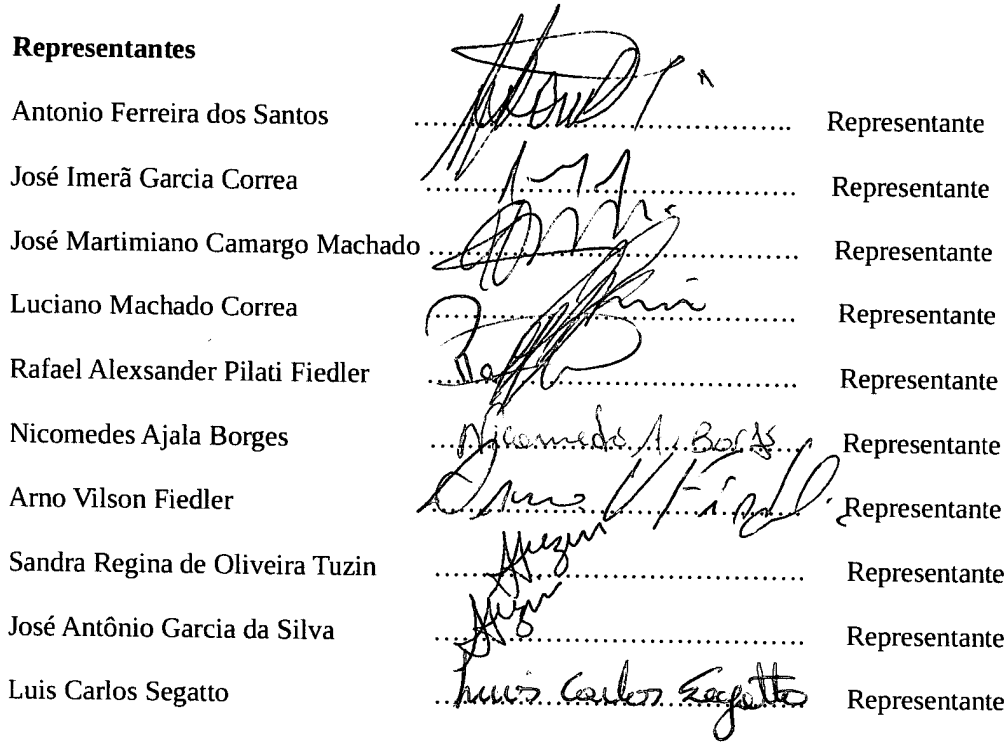 Representantes
Antonio Ferreira dos Santos ........................................ Representante
José Imerã Garcia Correa ........................................ Representante
José Martimiano Camargo Machado ........................................ Representante
Luciano Machado Correa ........................................ Representante
Rafael Alexsander Pilati Fiedler ........................................ Representante
Nicomedes Ajala Borges Nicomedes A. Borges Representante
Arno Vilson Fiedler Arno V Fiedler Representante
Sandra Regina de Oliveira Tuzin Tuzin Representante
José Antônio Garcia da Silva ........................................ Representante
Luis Carlos Segatto Luis Carlos Segatto Representante